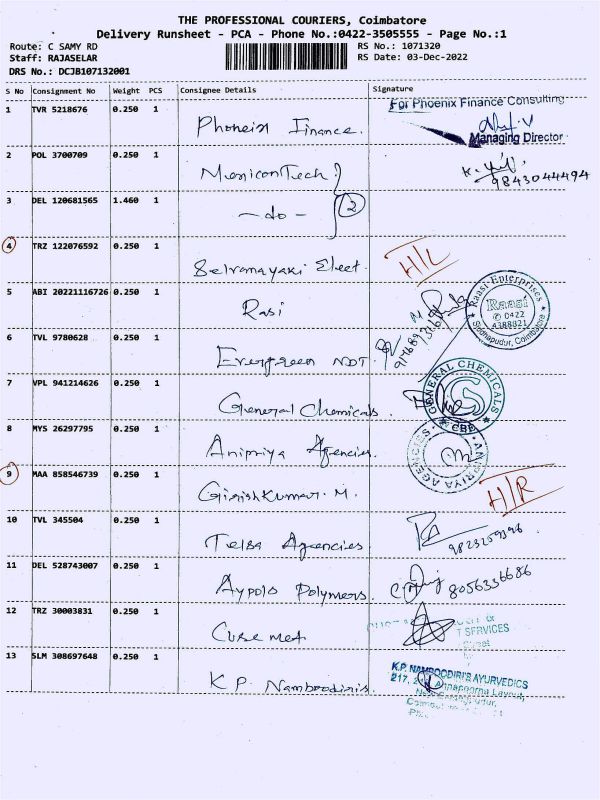 THE PROFESSIONAL COURIERS, Coimbatore
Delivery Runsheet - PCA - Phone No.:0422-3505555 - Page No.:1
Route: C SAMY RD RS No.: 1071320
Staff: RAJASELAR RS Date: 03-Dec-2022
DRS No.: DCJB107132001
S No Consignment No Weight PCS Consignee Details Signature
1 TVR 5218676 0.250 1 Phoneix Finance. For Phoenix Finance Consulting
Managing Director
2 POL 3700709 0.250 1 MeniconTech 9843044494
3 DEL 120681565 1.460 1 -do- 2
4 TRZ 122076592 0.250 1 Selvanayaki Elect. H/L
5 ABI 20221116726 0.250 1 Rasi Raasi Enterprises
Raasi
✆ 0422
4388821
Siddhapudur, Coimbatore
6 TVL 9780628 0.250 1 Evergreen NDT.
7 VPL 941214626 0.250 1 General Chemicals. GENERAL CHEMICALS
CBE
8 MYS 26297795 0.250 1 Anipriya Agencies. ANIPRIYA AGENCIES
9 MAA 858546739 0.250 1 Girishkumar. M. H/R
10 TVL 345504 0.250 1 Telsa Agencies.
11 DEL 528743007 0.250 1 Aypols Polymers. 8056336686
12 TRZ 30003831 0.250 1 Curemed
T SERVICES
13 SLM 308697648 0.250 1 K.P. Namboodiris. K.P. NAMBOODIRI'S AYURVEDICS
217, Annapoorna Layout,